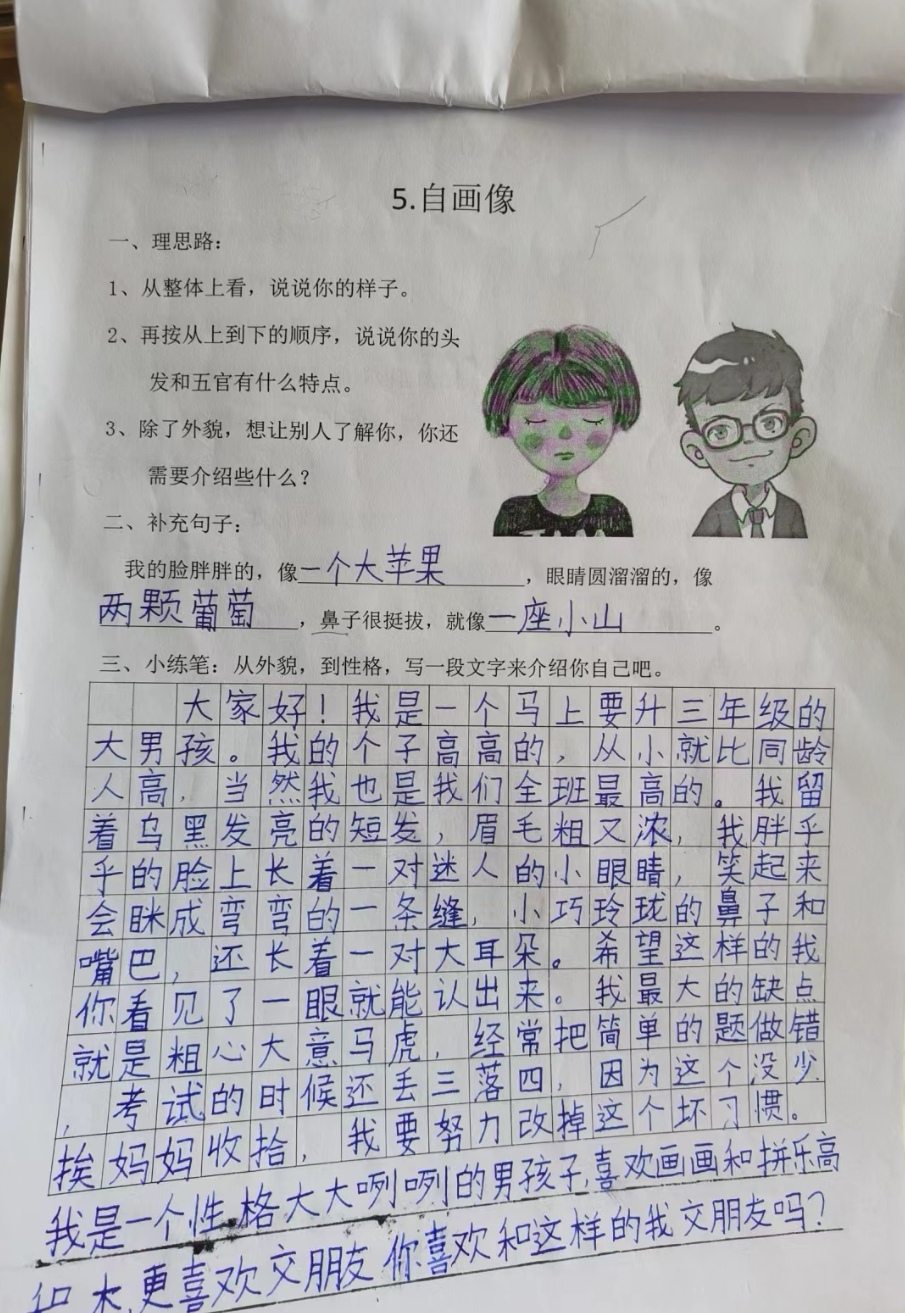 5.自画像
一、理思路：
1、从整体上看，说说你的样子。
2、再按从上到下的顺序，说说你的头
发和五官有什么特点。
3、除了外貌，想让别人了解你，你还
需要介绍些什么？
二、补充句子：
我的脸胖胖的，像一个大苹果，眼睛圆溜溜的，像
两颗葡萄，鼻子很挺拔，就像一座小山。
三、小练笔：从外貌，到性格，写一段文字来介绍你自己吧。
大家好！我是一个马上要升三年级的
大男孩。我的个子高高的，从小就比同龄
人高，当然我也是我们全班最高的。我留
着乌黑发亮的短发，眉毛粗又浓，我胖乎
乎的脸上长着一对迷人的小眼睛，笑起来
会眯成弯弯的一条缝，小巧玲珑的鼻子和
嘴巴，还长着一对大耳朵。希望这样的我
你看见了一眼就能认出来。我最大的缺点
就是粗心大意马虎，经常把简单的题做错
，考试的时候还丢三落四，因为这个没少
挨妈妈收拾，我要努力改掉这个坏习惯。
我是一个性格大大咧咧的男孩子,喜欢画画和拼乐高
更喜欢交朋友 你喜欢和这样的我交朋友吗？